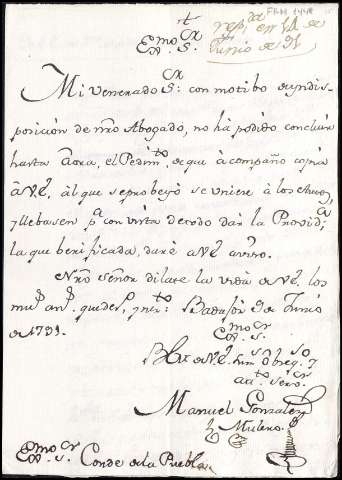 t
resp.da en 14 de
Junio de 91
Exmo. Sr.
Mi venerado Sr. con motibo de yndis-
posición de nro Abogado, no há podido concluir
hasta Aora, el Pedimto. de que acompaño copia
â V.E. â el que se probeyò se uniese â los Autos,
y llebasen pa. con vista de todo dar la Provida.
la que berificada, daré a V.E. aviso.
Nro Señor dilate la vida de V.E. los
ms. as. que deseo, y
Badajoz 9 de Junio
de 1791.
Exmo. Sr.
B.L.M. de V.E. su
Manuel Gonzalez
Mulero
Exmo. Sr. Conde de la Puebla